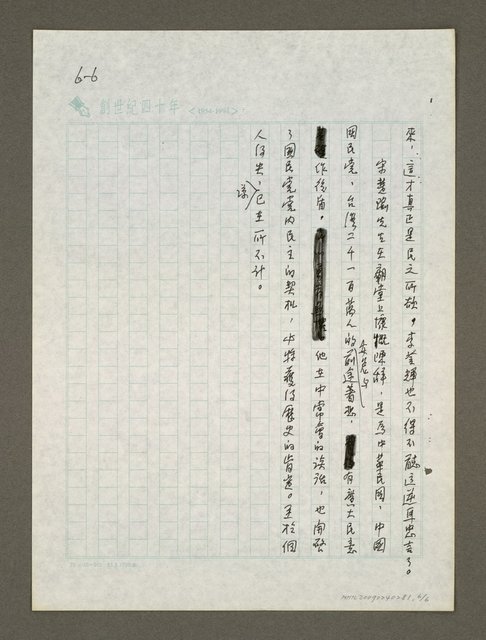 6-6
創世紀四十年 <1954-1994>
來，這才真正是民之所欲，李登輝也不得不聽這逆耳忠言了。
宋楚瑜先生在廟堂上慷慨陳辭，是為中華民國，中國
國民党，台灣二千一百萬人的安危与前途著想，有廣大民意
作後盾。他在中常會的談話，也開啟
了國民党党內民主的契机，必將獲得歷史的肯定。至於個
人得失，諒已在所不計。
NMTL20090240281, 6/6